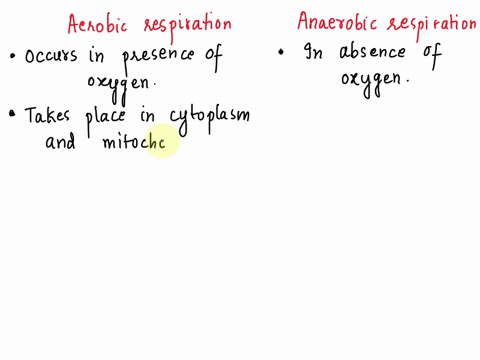 Aerobic respiration
• Occurs in presence of
oxygen.
• Takes place in cytoplasm
and mitoch
Anaerobic respiration
• In absence of
oxygen.